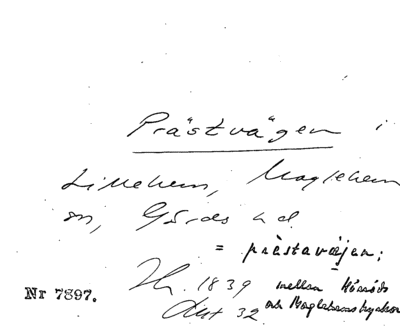 Prästvägen i
Lillehem, Maglehem
sn, Gärds hd
= prästaväjen;
1839 mellan Hörröds
32 och Maglehems kyrkor
Nr 7897.